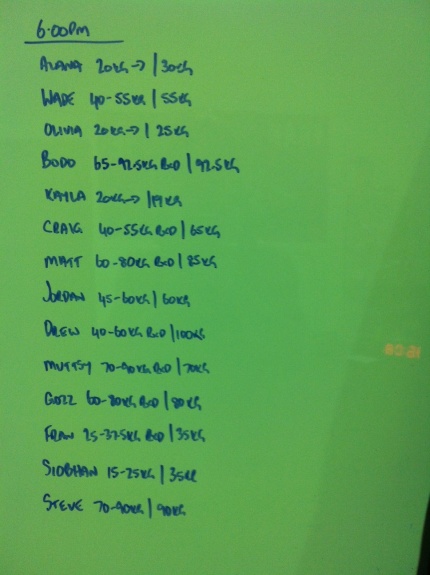 6:00PM
ALANA 20KG→ | 30KG
WADE 40-55KG | 55KG
OLIVIA 20KG→ | 25KG
BODD 65-92.5KG BCD | 92.5KG
KAYLA 20KG→ | 19KG
CRAIG 40-55KG BCD | 65KG
MATT 60-80KG BCD | 85KG
JORDAN 45-60KG | 60KG
DREW 40-60KG BCD | 100KG
MUTTSY 70-90KG BCD | 70KG
GOZZ 60-80KG BCD | 80KG
FRAN 25-37.5KG BCD | 35KG
SIOBHAN 15-25KG | 35KG
STEVE 70-90KG | 90KG